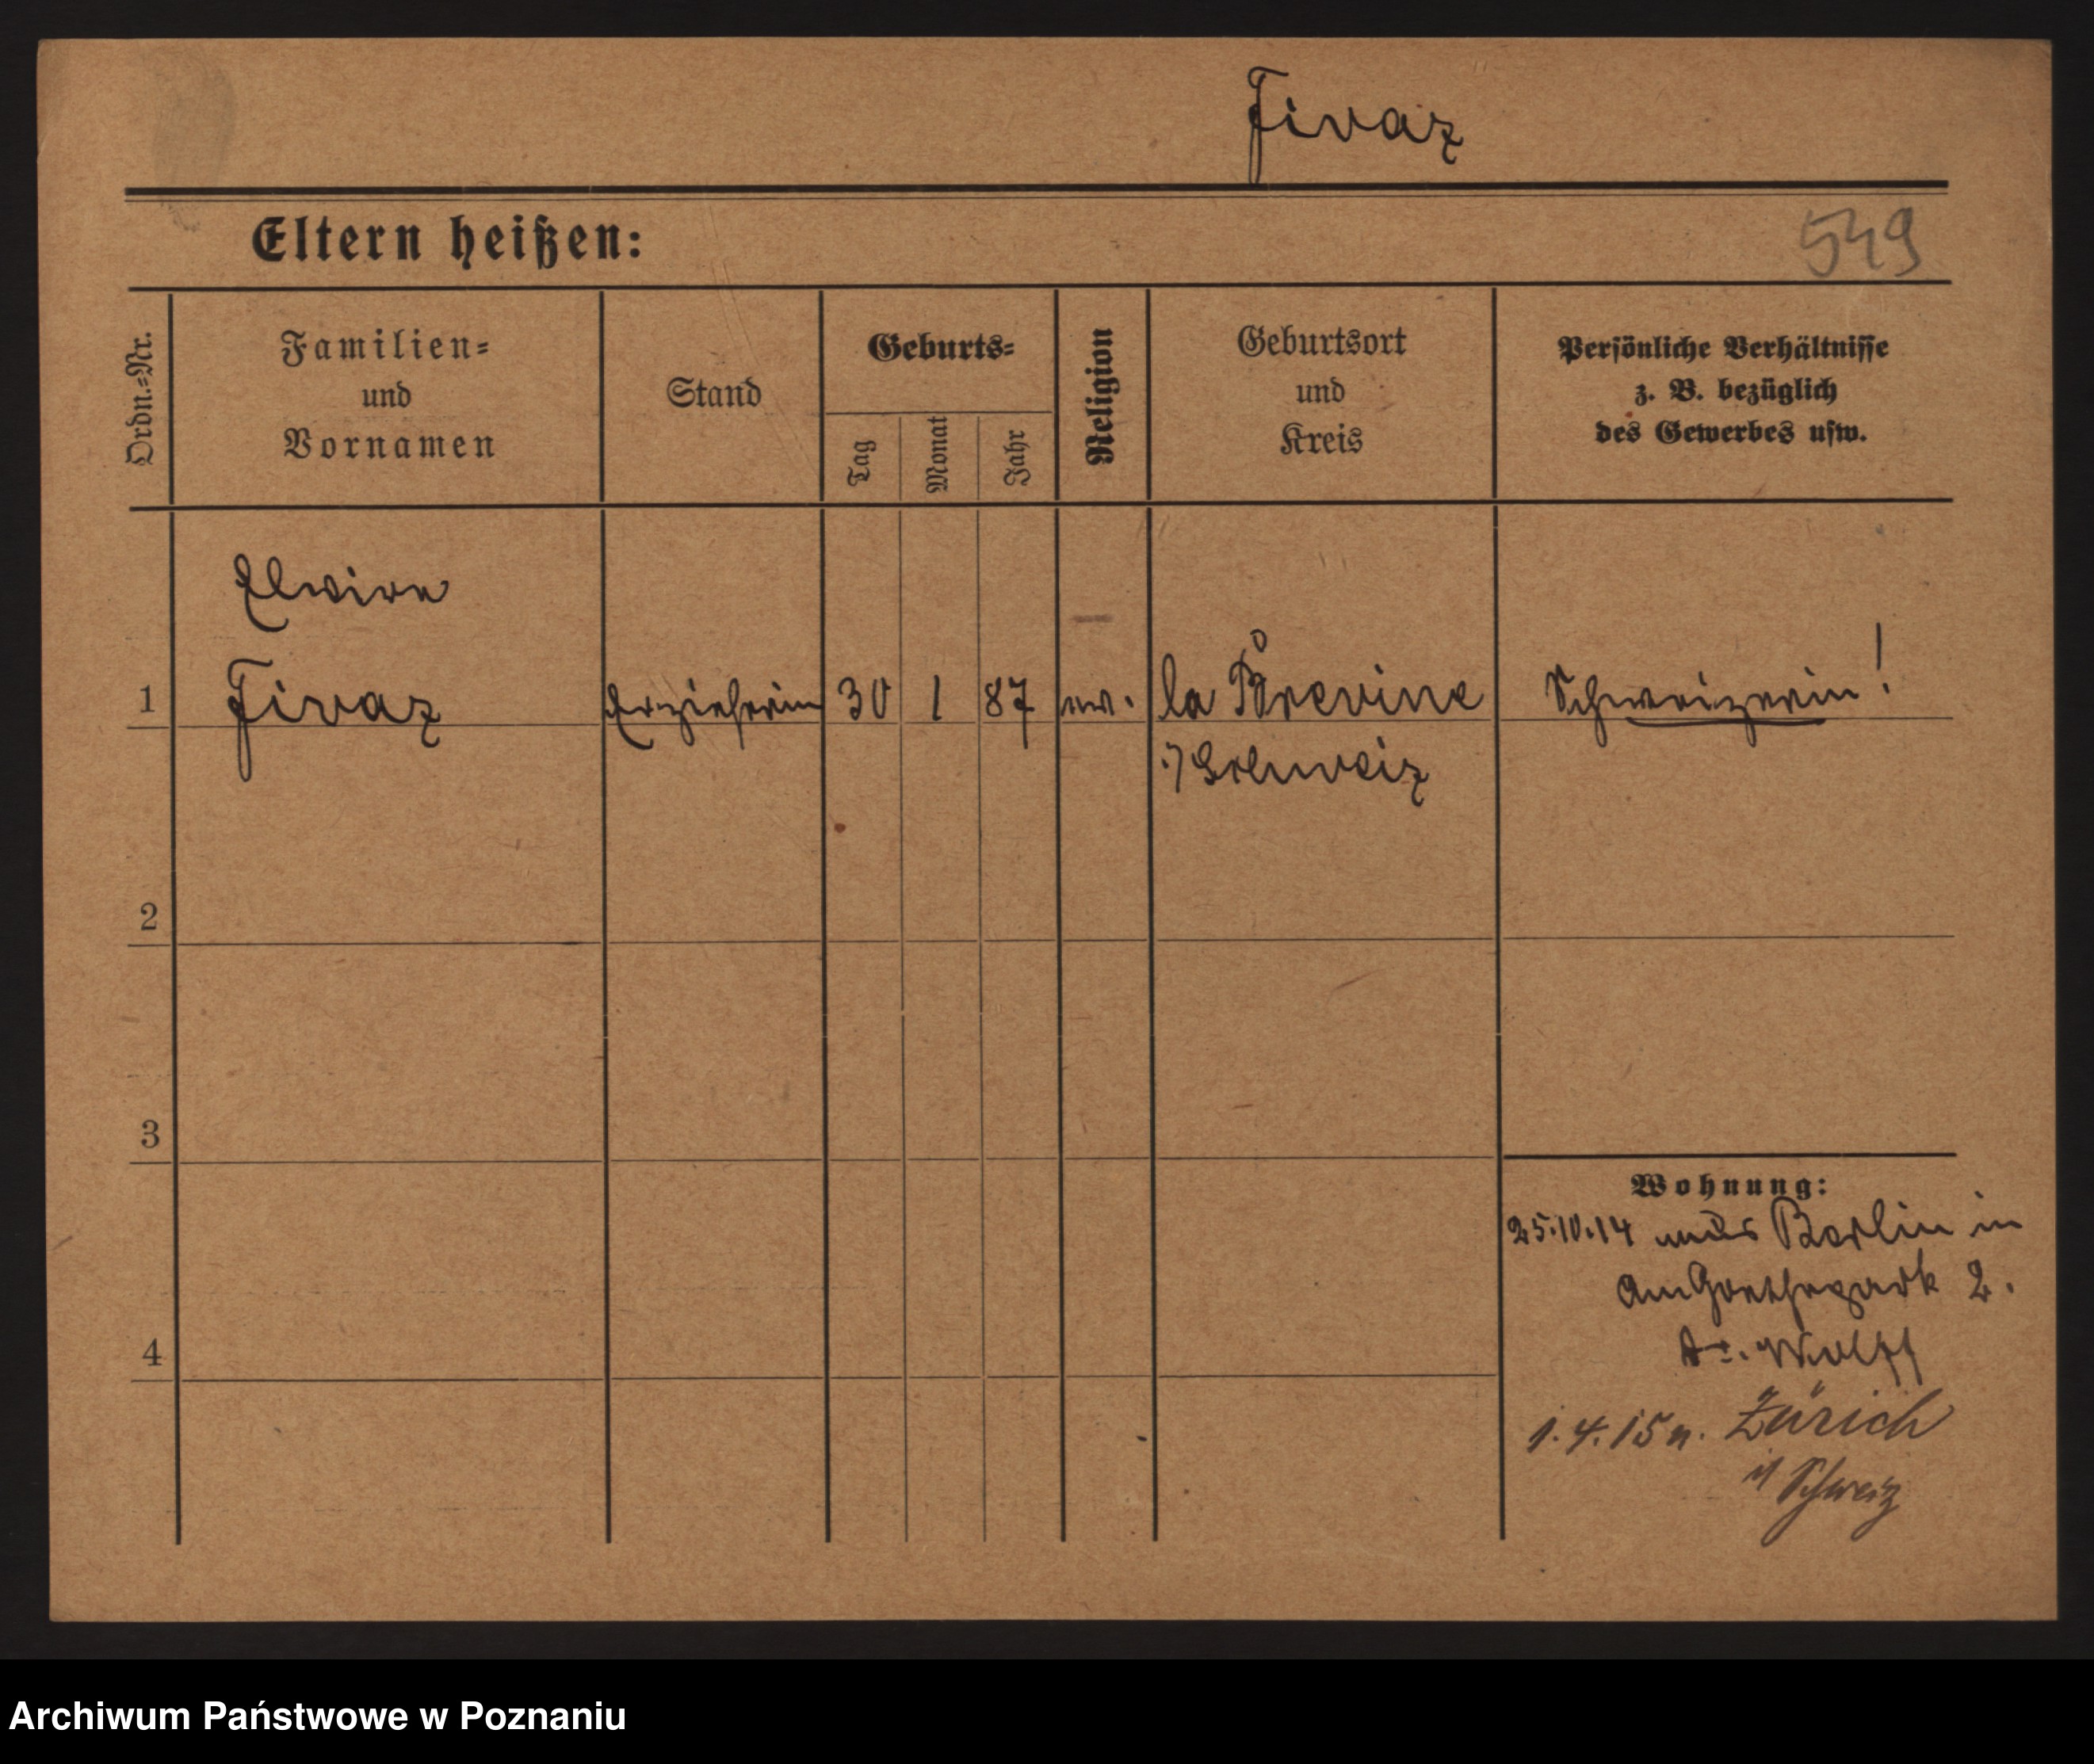 Fivaz
Eltern heißen:
549
Ordn.=Nr.
Familien=
und
Vornamen
Stand
Geburts=
Tag
Monat
Jahr
Religion
Geburtsort
und
Kreis
Persönliche Verhältnisse
z. B. bezüglich
des Gewerbes usw.
Elvire
1 Fivaz Erzieherin 30 1 87 ev. la Brevine Schweizerin!
Schweiz
2
3
4
Wohnung:
25.10.14 aus Berlin in
Am Goethepark 2.
Wolff
1.4.15 n. Zürich
i/ Schweiz
Archiwum Państwowe w Poznaniu